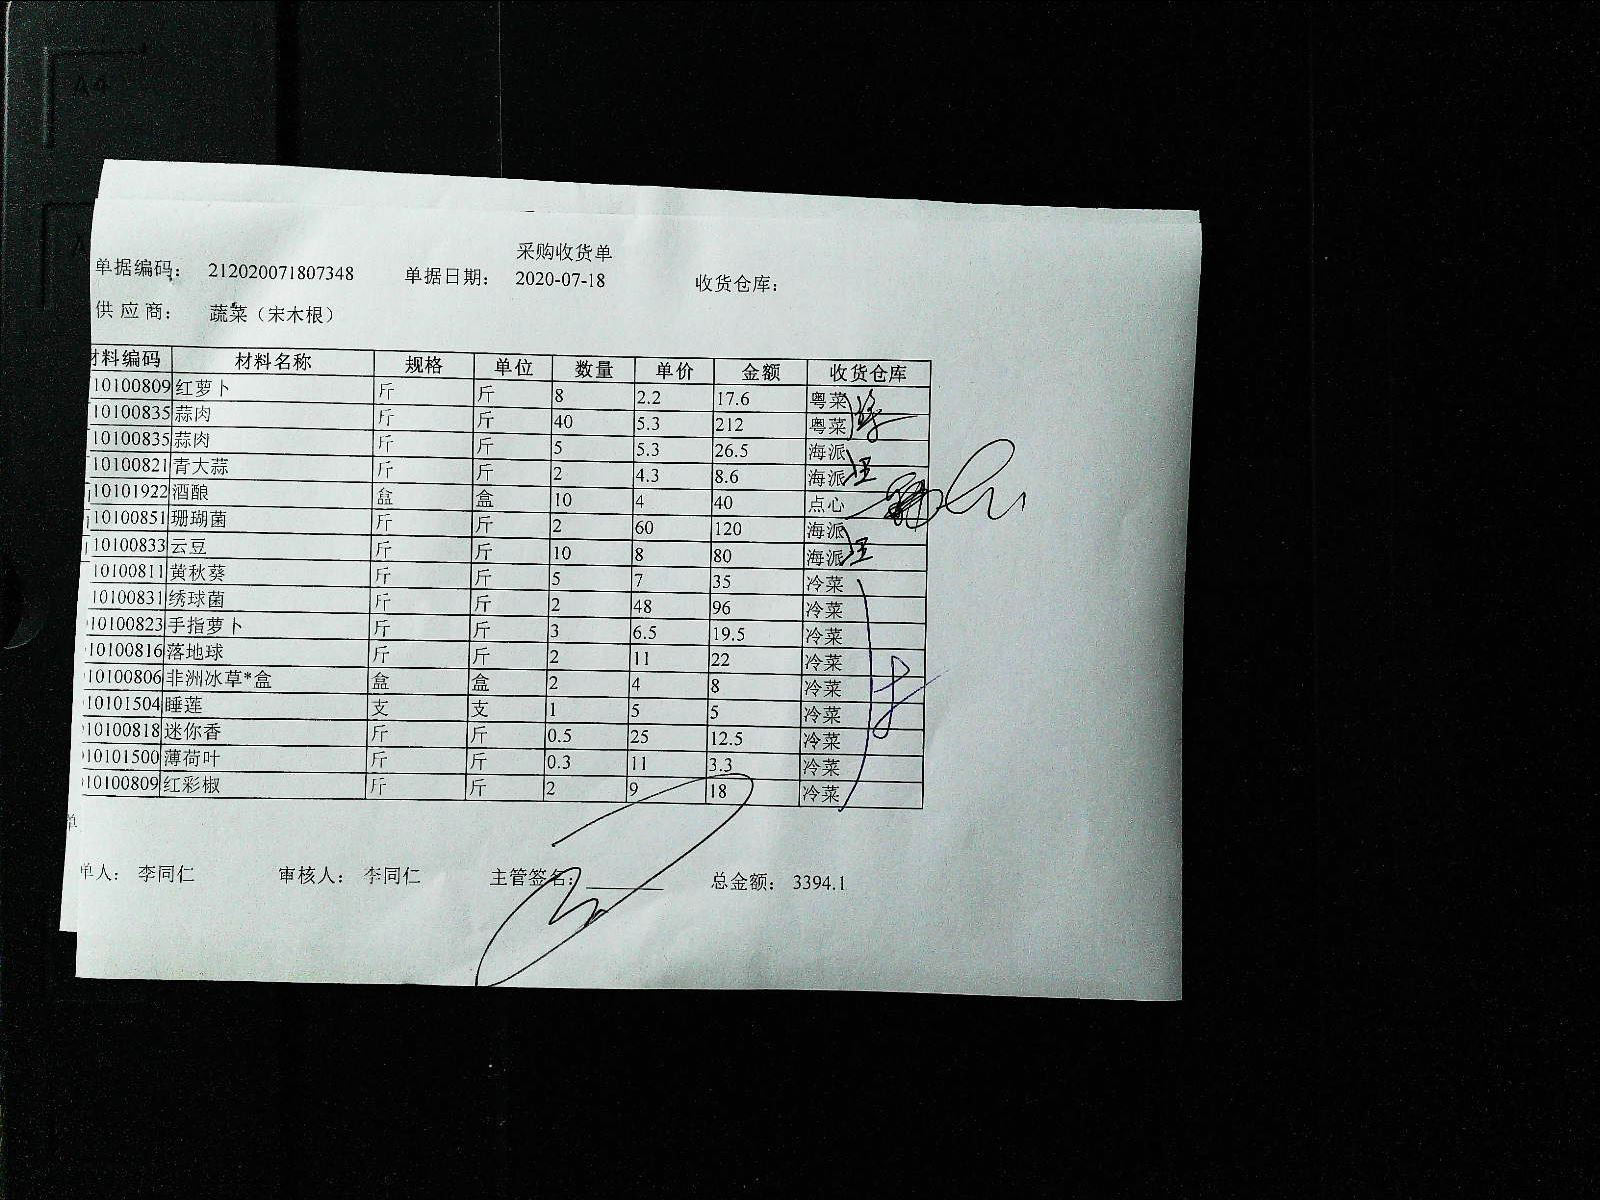 采购收货单
单据编码： 212020071807348 单据日期： 2020-07-18 收货仓库：
供 应 商： 蔬菜（宋木根）
材料编码 材料名称 规格 单位 数量 单价 金额 收货仓库
10100809 红萝卜 斤 斤 8 2.2 17.6 粤菜
10100835 蒜肉 斤 斤 40 5.3 212 粤菜
10100835 蒜肉 斤 斤 5 5.3 26.5 海派
10100821 青大蒜 斤 斤 2 4.3 8.6 海派 汪
10101922 酒酿 盒 盒 10 4 40 点心
10100851 珊瑚菌 斤 斤 2 60 120 海派
10100833 云豆 斤 斤 10 8 80 海派 汪
10100811 黄秋葵 斤 斤 5 7 35 冷菜
10100831 绣球菌 斤 斤 2 48 96 冷菜
10100823 手指萝卜 斤 斤 3 6.5 19.5 冷菜
10100816 落地球 斤 斤 2 11 22 冷菜
10100806 非洲冰草*盒 盒 盒 2 4 8 冷菜
10101504 睡莲 支 支 1 5 5 冷菜
10100818 迷你香 斤 斤 0.5 25 12.5 冷菜
10101500 薄荷叶 斤 斤 0.3 11 3.3 冷菜
10100809 红彩椒 斤 斤 2 9 18 冷菜
单
单人： 李同仁 审核人： 李同仁 主管签名： 总金额： 3394.1